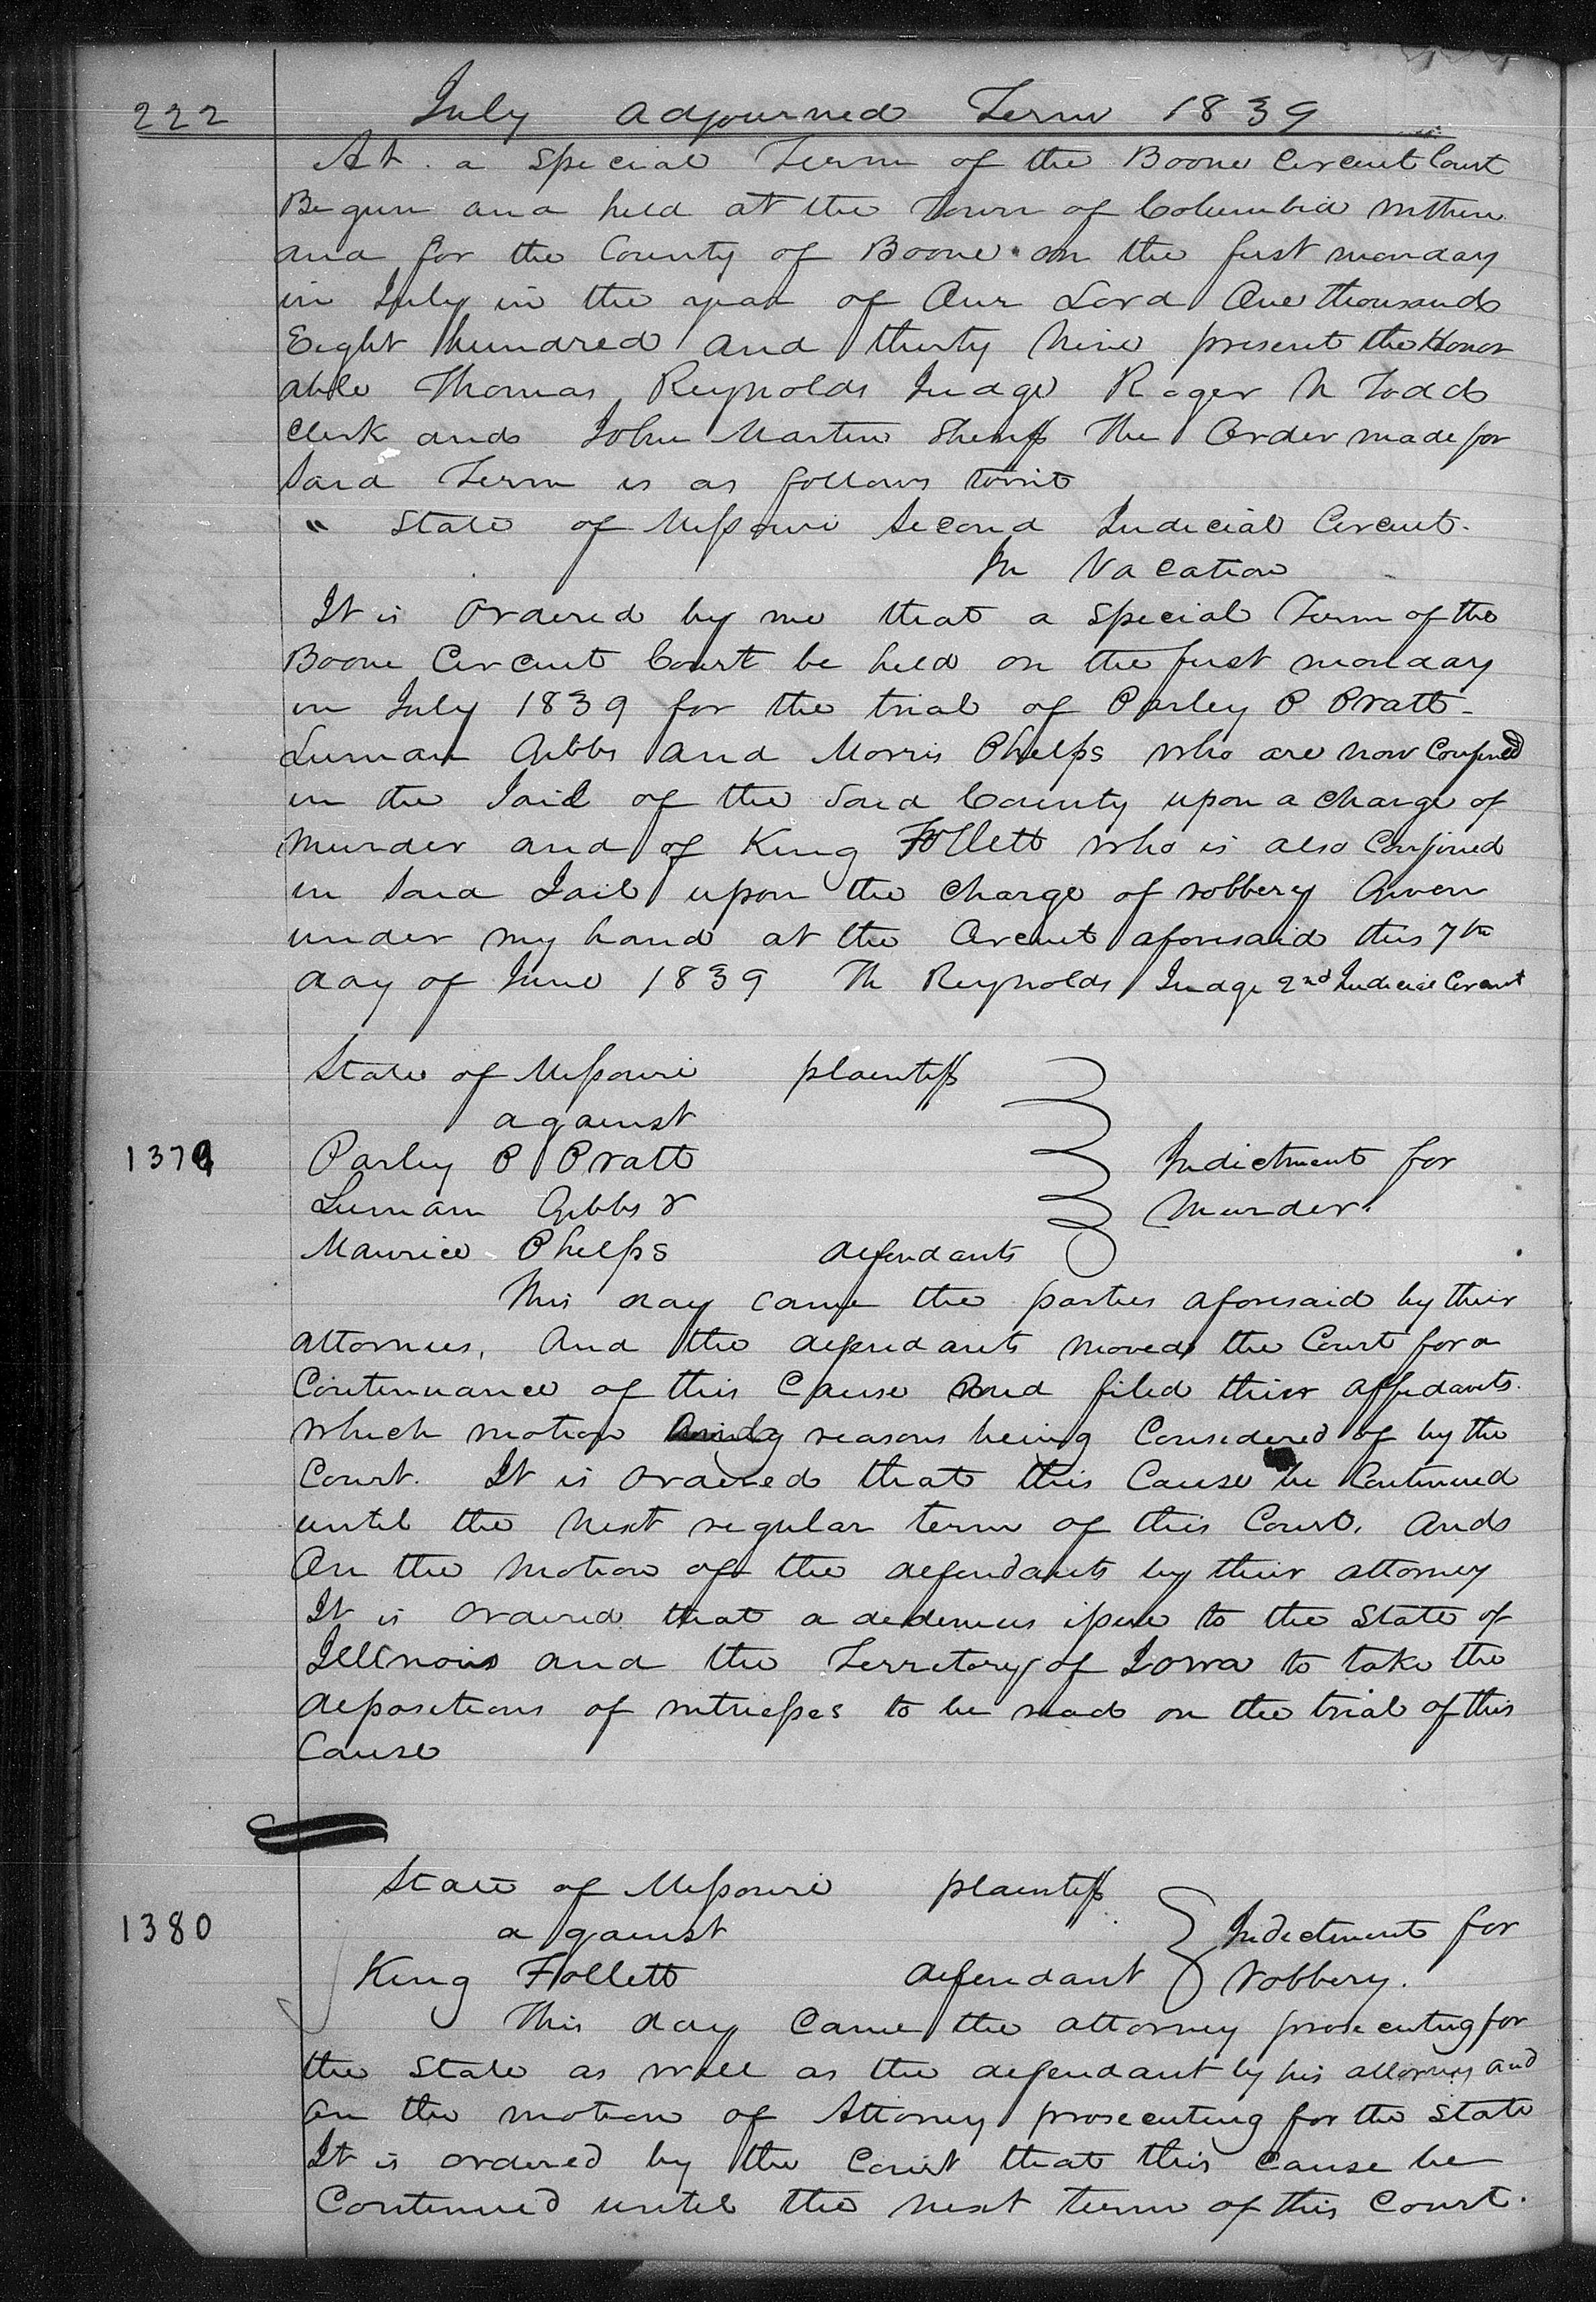 222 July adjourned Term 1839
At a special Term of the Boone Circuit Court
Begun and held at the Town of Columbia within
and for the County of Boone on the first monday
in July in the year of Our Lord One thousand
Eight hundred and thirty Nine present the Honor
able Thomas Reynolds Judge Roger N Todd
Clerk and John Martin Sheriff The Order made for
Said Term is as follows towit
" State of Missouri Second Judicial Circuit.
In Vacation
It is Ordered by me that a special Term of the
Boone Circuit Court be held on the first monday
in July 1839 for the trial of Parley P Pratt
Luman Gibbs and Morris Phelps who are now Confined
in the Jail of the Said County upon a charge of
murder and of King Follett who is also Confined
in Said Jail upon the charge of robbery Given
under my hand at the Circuit aforesaid this 7th
day of June 1839 Th Reynolds Judge 2nd Judicial Circuit
State of Missouri plaintiff
against
1379 Parley P Pratt Indictment for
Luman Gibbs & Murder.
Maurice Phelps defendants
This day came the parties aforesaid by their
attornies, And the defendants moved the Court for a
Continuance of this Cause and filed their affidavits.
which motion reasons being Considered of by the
Court. It is ordered that this Cause be Continued
until the next regular term of this Court, and
On the motion of the defendants by their attorney
It is ordered that a dedimus issue to the State of
Illinois and the Territory of Iowa to take the
depositions of witnesses to be read on the trial of this
Cause
State of Missouri plaintiff
1380 against Indictment for
King Follett defendant robbery.
This day Came the attorney prosecuting for
the State as well as the defendant by his attorney and
On the motion of Attorney prosecuting for the State
It is ordered by the Court that this Cause be
Continued until the next term of this Court.